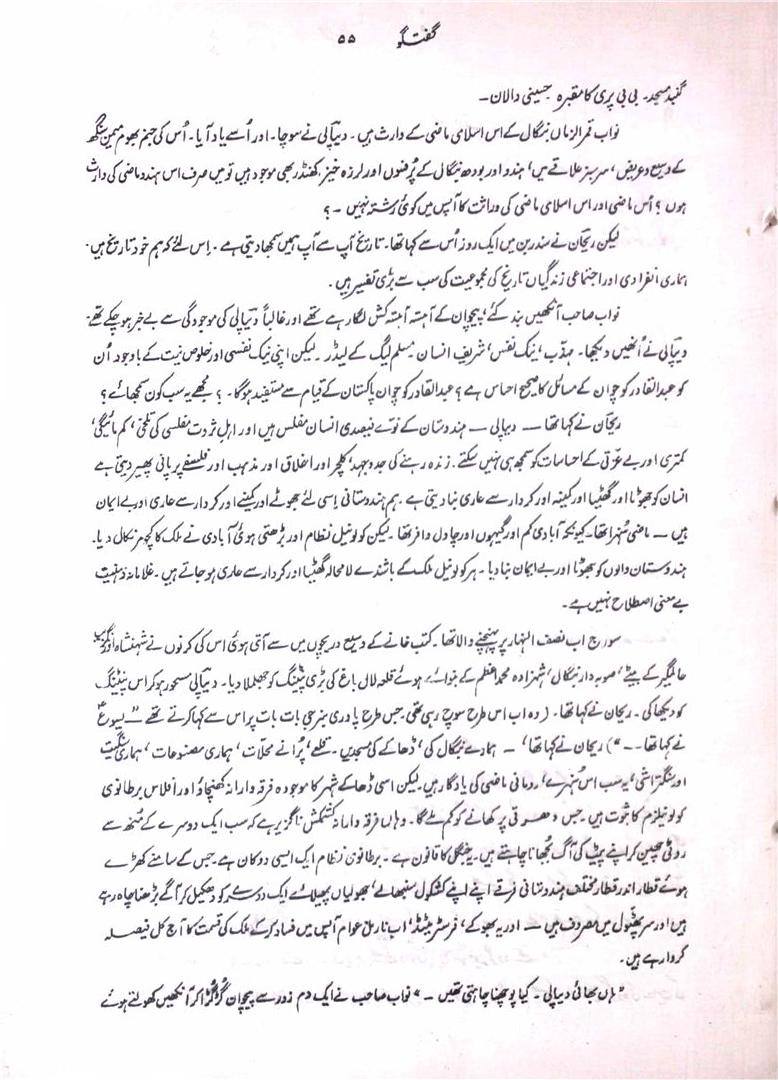 گفتگو ۵۵
گنبد مسجد۔ بی بی پری کا مقبرہ حسینی دالان۔
نواب قمر الزماں بنگال کے اس اسلامی ماضی کے وارث ہیں۔ دیپالی نے سوچا۔ اور اُسے یاد آیا۔ اُس کی جنم بھوم میمن سنگھ
کے وسیع و عریض، سرسبز علاقے میں، ہندو اور بودھ بنگال کے پُرفسوں اور لرزہ خیز کھنڈر بھی موجود ہیں تو میں صرف اس ہندو ماضی کی وارث
ہوں؟ اُس ماضی اور اس اسلامی ماضی کی وراثت کا آپس میں کوئی رشتہ نہیں۔؟
لیکن ریحان نے سندر بن میں ایک روز اُس سے کہا تھا۔ تاریخ آپ سے آپ ہمیں سمجھا دیتی ہے۔ اِس لئے کہ ہم خود تاریخ ہیں۔
ہماری انفرادی اور اجتماعی زندگیاں تاریخ کی مجموعیت کی سب سے بڑی تفسیر ہیں۔
نواب صاحب آنکھیں بند کئے، پیچوان کے آہستہ آہستہ کش لگا رہے تھے اور غالباً دیپالی کی موجودگی سے بے خبر ہو چکے تھے۔
دیپالی نے اُنھیں دیکھا۔ مہذب، نیک نفس، شریف انسان۔ مسلم لیگ کے لیڈر۔ لیکن اپنی نیک نفسی اور خلوص نیت کے باوجود اُن
کو عبدالقادر کوچوان کے مسائل کا صحیح احساس ہے؟ عبدالقادر کوچوان پاکستان کے قیام سے مستفید ہوگا۔؟ مجھے یہ سب کون سمجھائے؟
ریحان نے کہا تھا — دیپالی — ہندوستان کے نوّے فیصدی انسان مفلس ہیں اور اہلِ ثروت مفلسی کی تلخی، کم مائیگی،
کمتری اور بے عزّتی کے احساسات کو سمجھ ہی نہیں سکتے۔ زندہ رہنے کی جدوجہد، کلچر اور اخلاق اور مذہب اور فلسفے پر پانی پھیر دیتی ہے
انسان کو جھوٹا اور گھٹیا اور کمینہ اور کردار سے عاری بنا دیتی ہے۔ ہم ہندوستانی اِسی لئے جھوٹے اور کمینے اور کردار سے عاری اور بے ایمان
ہیں — ماضی سُنہرا تھا۔ کیونکہ آبادی کم اور گیہوں اور چاول وافر تھا۔ لیکن کولونیل نظام اور بڑھتی ہوئی آبادی نے ملک کا کچومر نکال دیا۔
ہندوستان والوں کو جھوٹا اور بے ایمان بنا دیا۔ ہر کولونیل ملک کے باشندے لامحالہ گھٹیا اور کردار سے عاری ہو جاتے ہیں۔ غلامانہ ذہنیت
بے معنی اصطلاح نہیں ہے۔
سورج اب نصف النہار پر پہنچنے والا تھا۔ کتب خانے کے وسیع دریچوں میں سے آتی ہوئی اس کی کرنوں نے شہنشاہ اورنگزیب
عالمگیر کے بیٹے، صوبہ دار بنگال، شہزادہ محمد اعظم کے بنوائے ہوئے قلعہ لال باغ کی بڑی پینٹنگ کو جھلملا دیا۔ دیپالی مسحور ہو کر اس پینٹنگ
کو دیکھا کی۔ ریحان نے کہا تھا۔ (وہ اب اس طرح سوچ رہی تھی جس طرح پادری بنرجی بات بات پر اس سے کہا کرتے تھے "— یسوع
نے کہا تھا۔—") ریحان نے کہا تھا، — ہمارے بنگال کی، ڈھاکے کی مسجدیں۔ قلعے، پُرانے محلّات، ہماری مصنوعات، ہماری سنگیت
اور سنگتراشی، یہ سب اس سُنہرے، رومانی ماضی کی یادگار ہیں۔ لیکن اسی ڈھاکے شہر کا موجودہ فرقہ وارانہ کھنچاؤ اور افلاس برطانوی
کولونیلزم کا ثبوت ہیں۔ جس دھرتی پر کھانے کو کم ملے گا۔ وہاں فرقہ وارانہ کشمکش ناگزیر ہے کہ سب ایک دوسرے کے منھ سے
روٹی چھین کر اپنے پیٹ کی آگ بُجھانا چاہتے ہیں۔ یہ جنگل کا قانون ہے۔ برطانوی نظام ایک ایسی دوکان ہے۔ جس کے سامنے کھڑے
ہوئے قطار اندر قطار مختلف ہندوستانی فرقے اپنے اپنے کشکول سنبھالے، جھولیاں پھیلائے ایک دوسرے کو دھکیل کر آگے بڑھنا چاہ رہے
ہیں اور سر پھٹول میں مصروف ہیں — اور یہ بھوکے، فرسٹریٹیڈ، اب نارمل عوام آپس میں فساد کرکے ملک کی قسمت کا آج کل فیصلہ
کروا رہے ہیں۔
"ہاں بھائی دیپالی۔ کیا پوچھنا چاہتی تھیں۔" نواب صاحب نے ایک دم زور سے پیچوان گُڑگُڑا کر آنکھیں کھولتے ہوئے